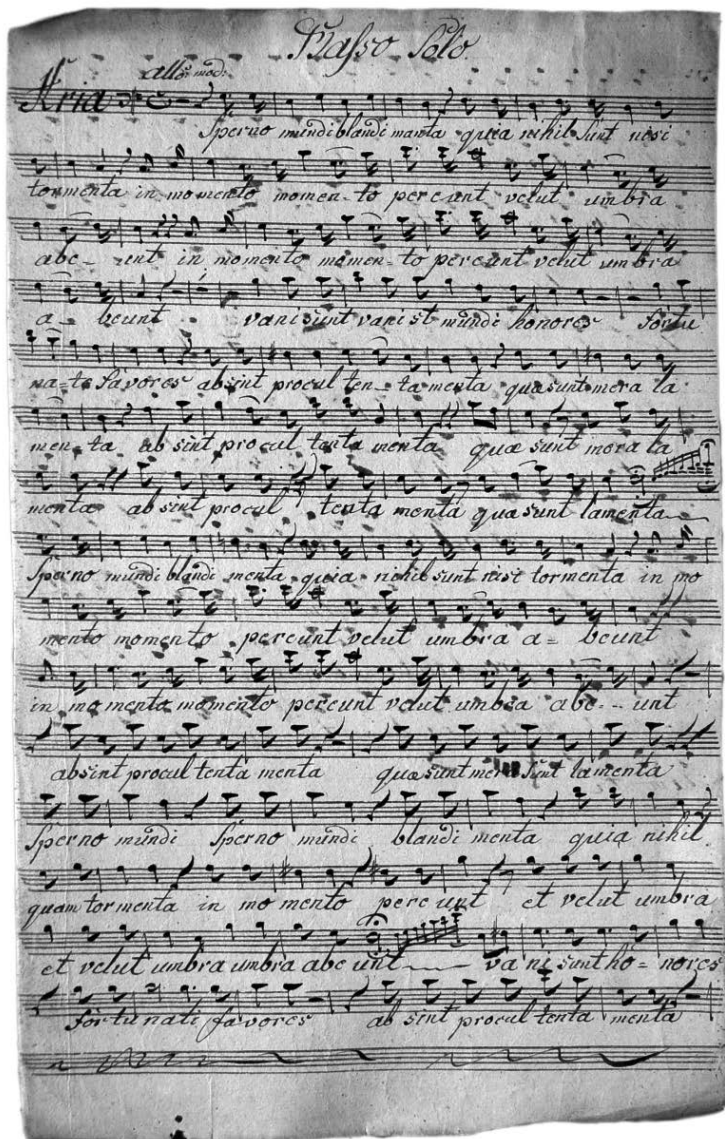 Basso Solo.
Aria allo: mod:
Sperno mundi blandi menta quia nihil sunt nisi
tormenta in momento momen-to pereunt velut umbra
abe- unt in momento momen-to pereunt velut umbra
a- beunt vani sunt vani st mundi honores fortu
na-te favores absint procul ten-ta menta quæ sunt mera la
men-ta ab sint procul tenta menta quæ sunt mera la
menta ab sint procul tenta menta quæ sunt lamenta
Sperno mundi blandi menta quia nihil sunt nisi tormenta in mo
mento momento pereunt velut umbra a= beunt
in momento momento pereunt velut umbra abe-- unt
absint procul tenta menta quæ sunt sunt lamenta
Sperno mundi Sperno mundi blandi menta quia nihil
quam tormenta in momento pereunt et velut umbra
et velut umbra umbra abe unt vani sunt ho= nores
fortunati favores ab sint procul tenta menta